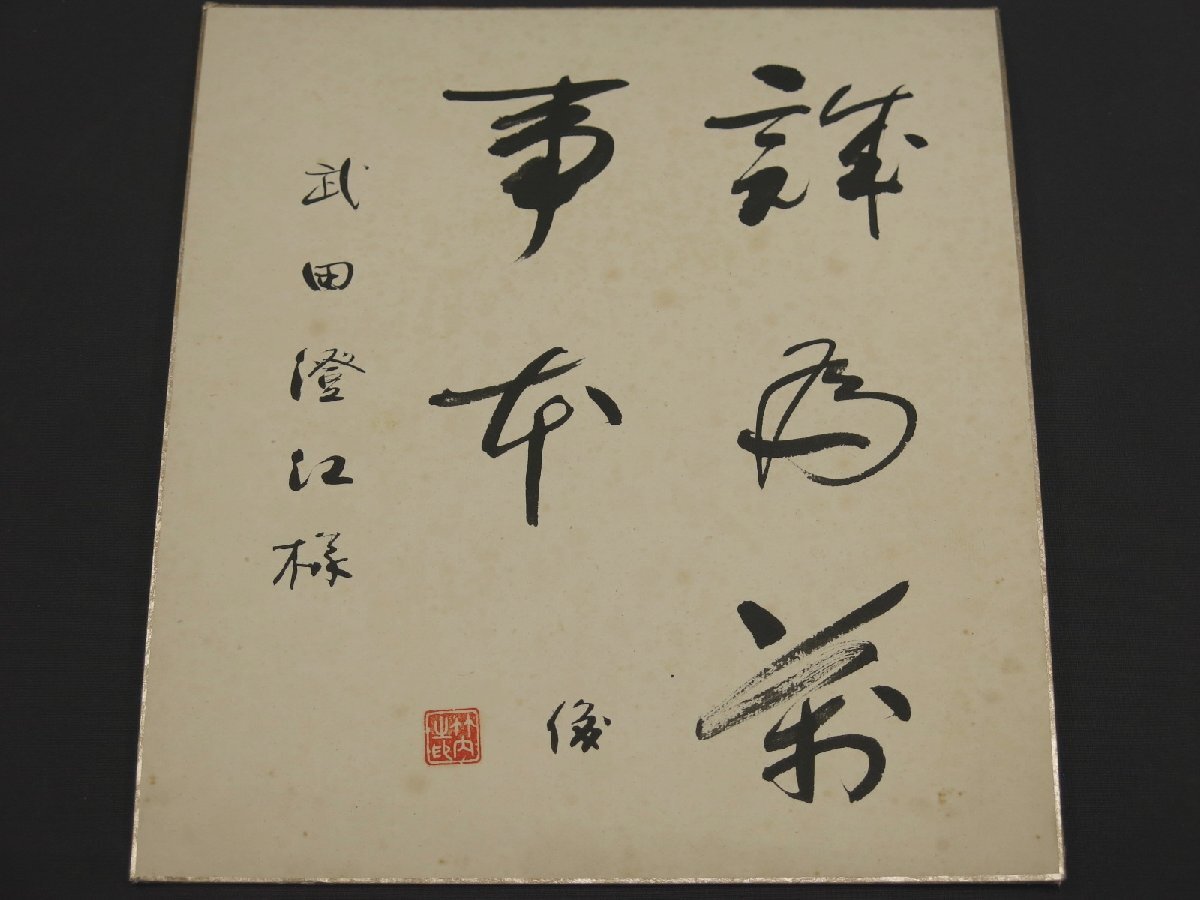 誠為萬
事本
俊
竹内
之印
武田澄江様